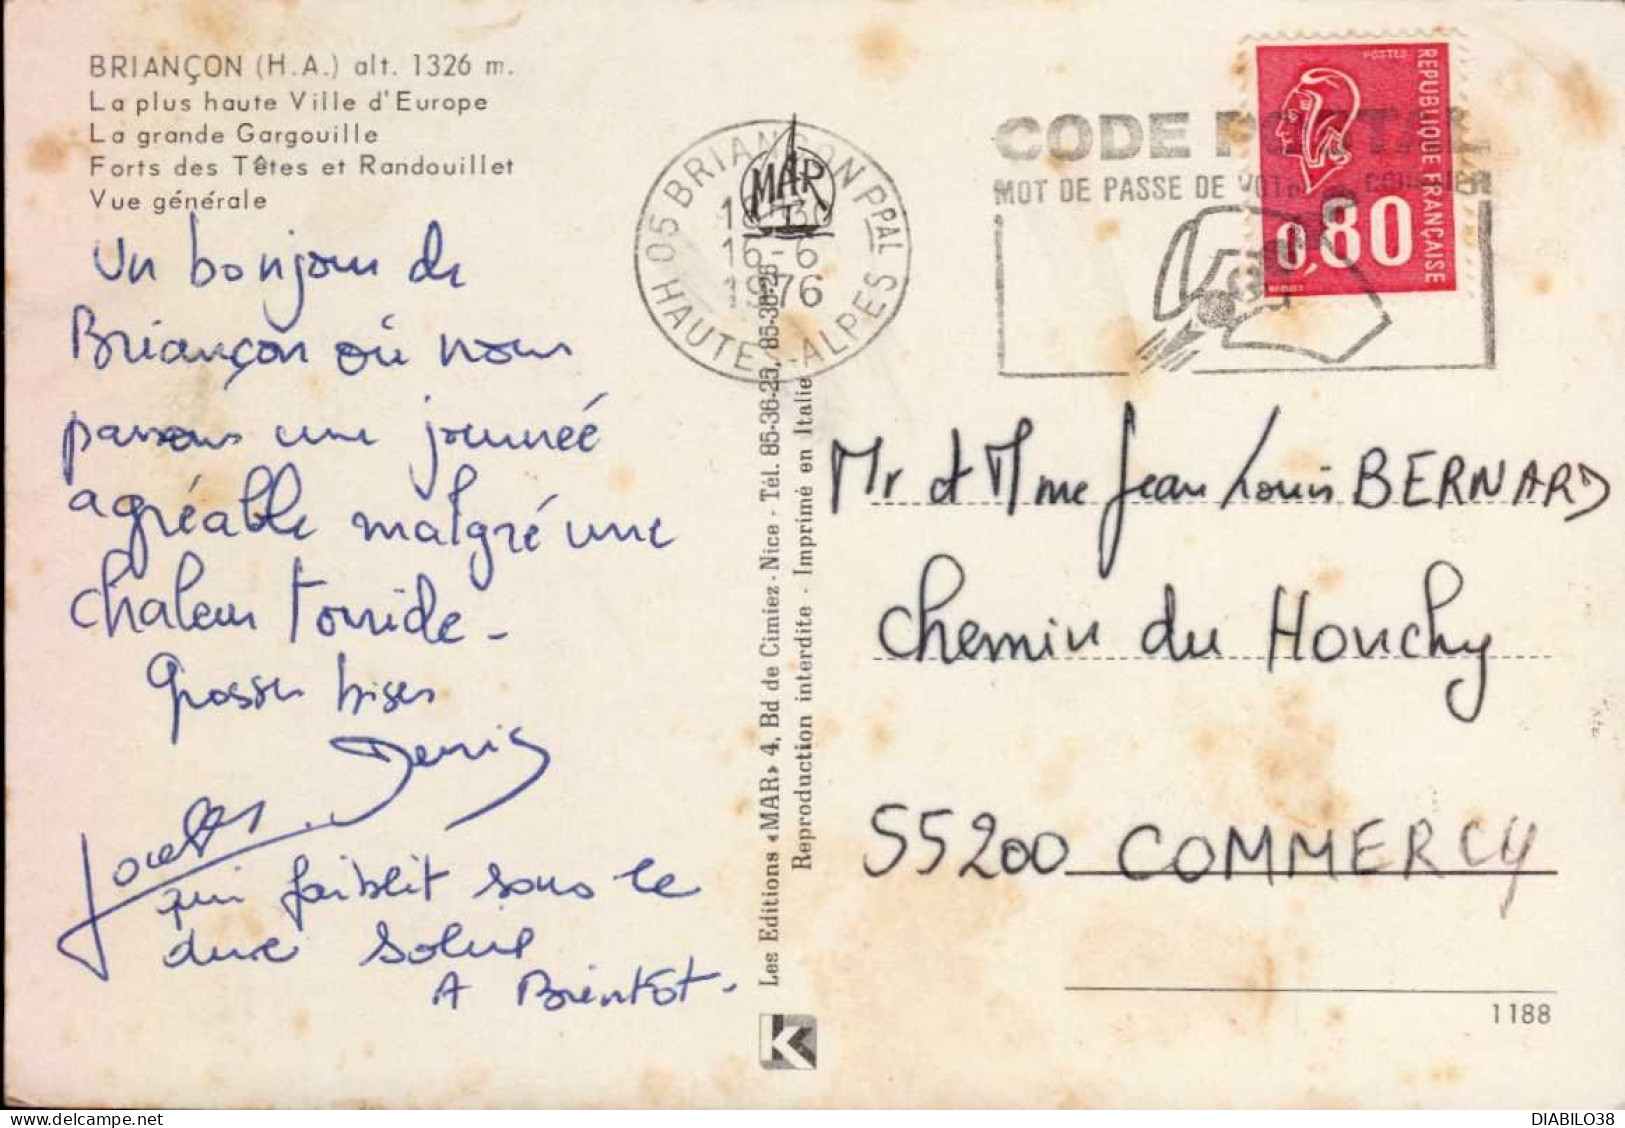 BRIANÇON (H.A.) alt. 1326 m.
La plus haute Ville d'Europe
La grande Gargouille
Forts des Têtes et Randouillet
Vue générale
un bonjour de
Briançon où nous
passons une journéé
agréable malgré une
chaleur torride -
Grosses bises
Denis
qui faiblit sous le
dure soleil
A Bientot -
05 BRIANCON PPAL
16-6
1976
HAUTES-ALPES
MAR
CODE POSTAL
MOT DE PASSE DE VOTRE COURRIER
POSTES
REPUBLIQUE FRANÇAISE
0,80
Les Editions «MAR» 4, Bd de Cimiez - Nice - Tél. 85-36-25, 85-36-26
Reproduction interdite - Imprimé en Italie
K
Mr et Mme Jean Louis BERNARD
Chemin du Houchy
55200 COMMERCY
1188
DIABILO38